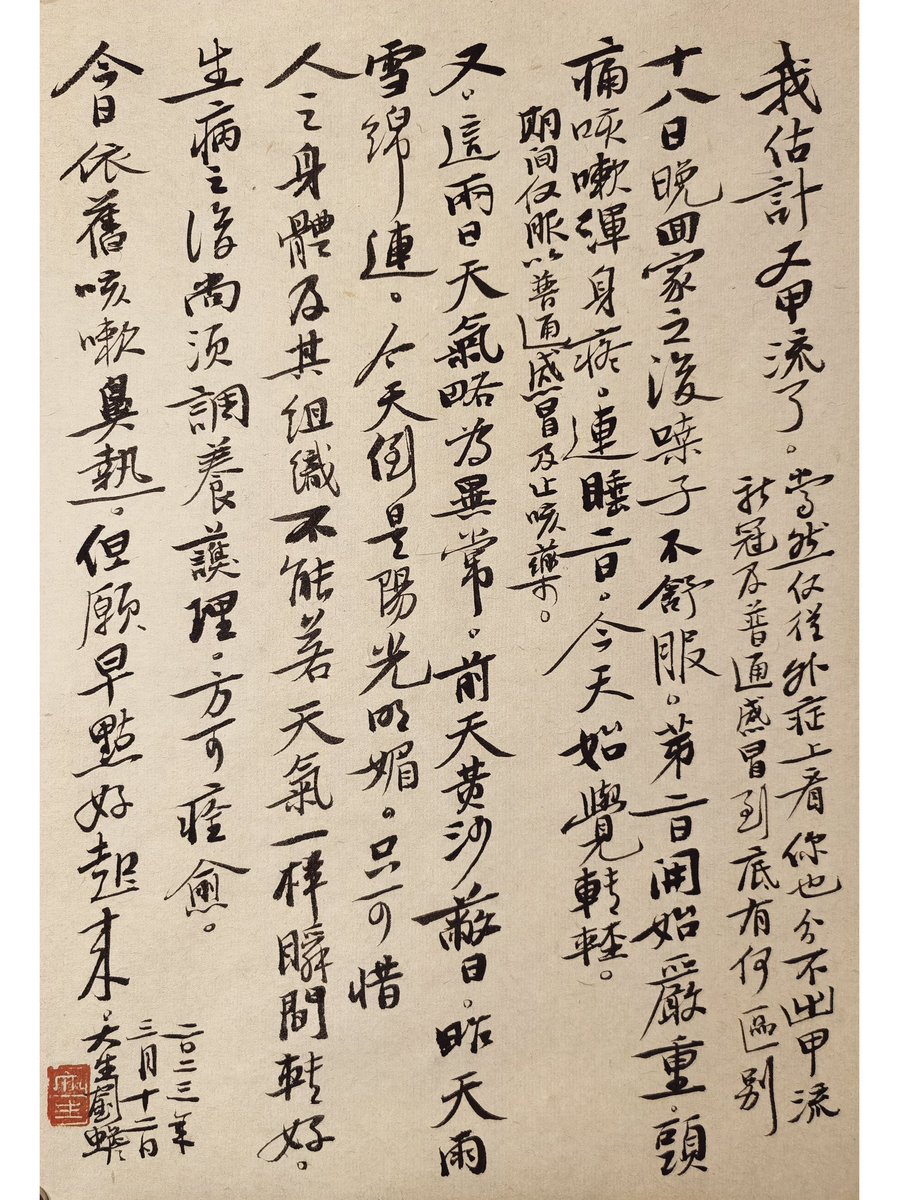 我估計又甲流了。
當然仅從外症上看你也分不出甲流
新冠及普通感冒到底有何區别
十八日晚回家之後嗓子不舒服。第二日開始嚴重。頭
痛咳嗽渾身疼。連睡二日。今天始覺轉輕。
期间仅服以普通感冒及止咳藥。
又。這兩日天氣略為異常。前天黄沙蔽日。昨天雨
雪綿連。今天倒是陽光明媚。只可惜
人之身體及其组織不能若天氣一樣瞬間轉好。
生病之後尚须調養護理。方可痊愈。
今日依舊咳嗽鼻熱。但願早點好起来。
二〇二三年
三月十二日